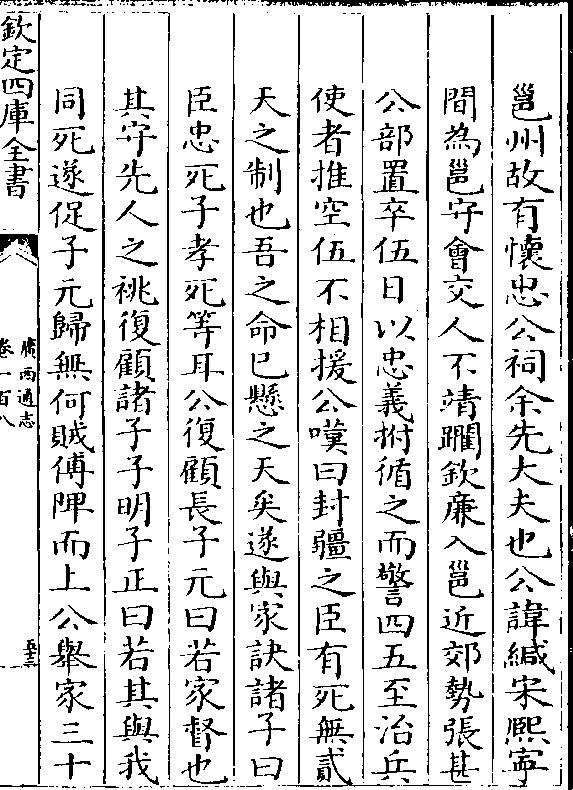 邕州故有懷忠公祠余先大夫也公諱緘宋熈寧
間為邕守會交人不靖躪欽亷入邕近郊勢張甚
公部置卒伍日以忠義拊循之而警四五至治兵
使者推空伍不相援公嘆曰封疆之臣有死無貳
天之制也吾之命已懸之天矣遂與家訣諸子曰
臣忠死子孝死等耳公復顧長子元曰若家督也
其守先人之祧復顧諸子子明子正曰若其與我
同死遂促子元歸無何賊傅陴而上公舉家三十
欽定四庫全書
廣西通志
卷一百八